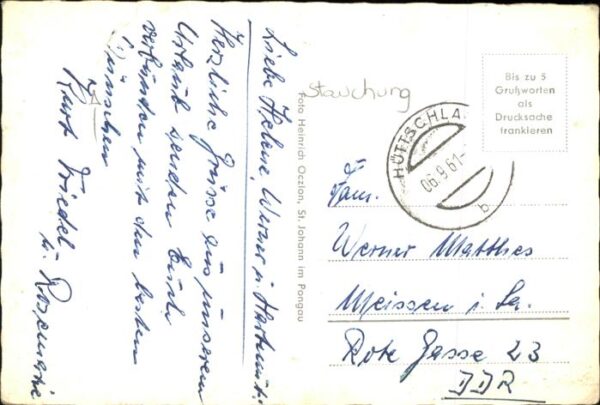 Liebe Helene, Werner u. Hartmut!
Herzliche Grüsse aus unserem
Urlaub senden Euch
verbunden mit den besten
Wünschen
Kurt Friedel
u. Rosemarie
Foto Heinrich Oczlon, St. Johann im Pongau
Stauchung
Bis zu 5
Grußworten
als
Drucksache
frankieren
HÜTTSCHLA
06.9.61-
b
Fam.
Werner Matthes
Meissen i. Sa.
Rote Gasse 23
DDR